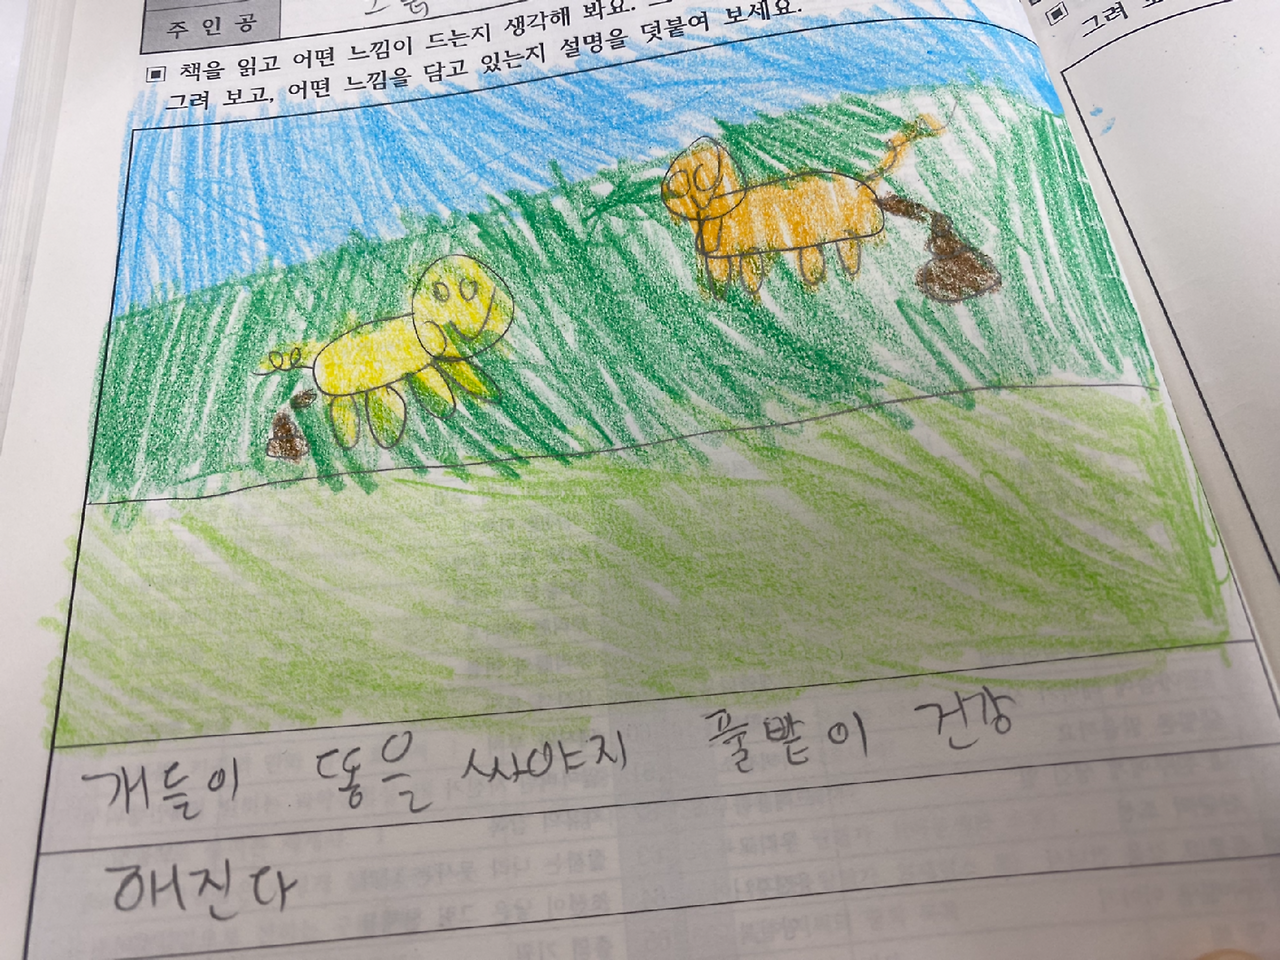 주인공
▣ 책을 읽고 어떤 느낌이 드는지 생각해 봐요.
그려 보고, 어떤 느낌을 담고 있는지 설명을 덧붙여 보세요.
▣
그려
개들이 똥을 싸야지 풀밭이 건강
해진다